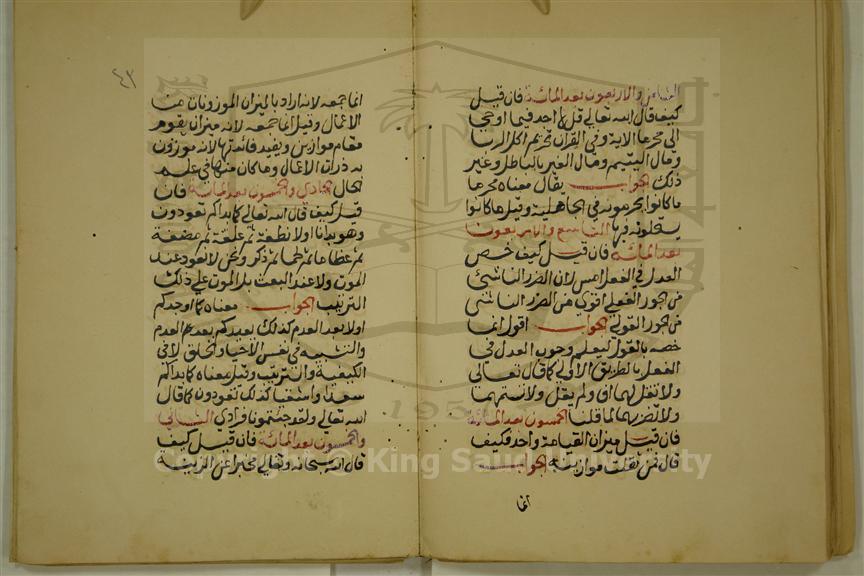 الثامن والاربعون بعد المائة فان قيل
كيف قال الله تعالى قل لا اجد فيما اوحي
الي محرما الاية وفي القران تحريم اكل الربا
ومال اليتيم ومال الغير بالباطل وغير
ذلك الجواب يقال معناه محرما
ما كانوا يحرمونه في الجاهلية وقيل ما كانوا
يستحلونه فيها التاسع والاربعون
بعد المائة فان قيل كيف خص
العدل في الفعل امس لان الضرر الناشئ
من الجور الفعلي اقوى من الضرر الناشئ
من الجور القولي الجواب اقول انما
خصه بالقول ليعلم وجوب العدل في
الفعل بالطريق الاولى كما قال تعالى
ولا تقل لهما اف ولم يقل ولا تشتمهما
ولا تضربهما لما قلنا الخمسون بعد المائة
فان قيل ميزان القيامة واحد وكيف
قال فمن ثقلت موازينه الجواب
انما
٤٣
انما جمعه لانه اراد بالميزان الموزونات من
الاعمال وقيل انما جمعه لانه ميزان يقوم
مقام موازين ويفيد فائدتها لانه موزون
به ذرات الاعمال وما كان منها في عظم
الجبال الحادي والخمسون بعد المائة فان
قيل كيف قال الله تعالى كما بداكم تعودون
وهو بدانا اولا نطفة ثم علقة ثم مضغة
ثم عظاما ثم لحما ثم ذكر ونحن لا نعود عند
الموت ولا عند البعث بعد الموت على ذلك
الترتيب الجواب معناه كما اوجدكم
اولا بعد العدم كذلك يعيدكم بعد العدم
والتشبيه في نفس الاحياء والخلق لا في
الكيفية والترتيب وقيل معناه كما بداكم
سعدا واشقيا كذلك تعودون كما قال
الله تعالى ولقد جئتمونا فرادى الثاني
والخمسون بعد المائة فان قيل كيف
قال الله سبحانه وتعالى مخبرا عن الزينة
1957
Copyright © King Saud University